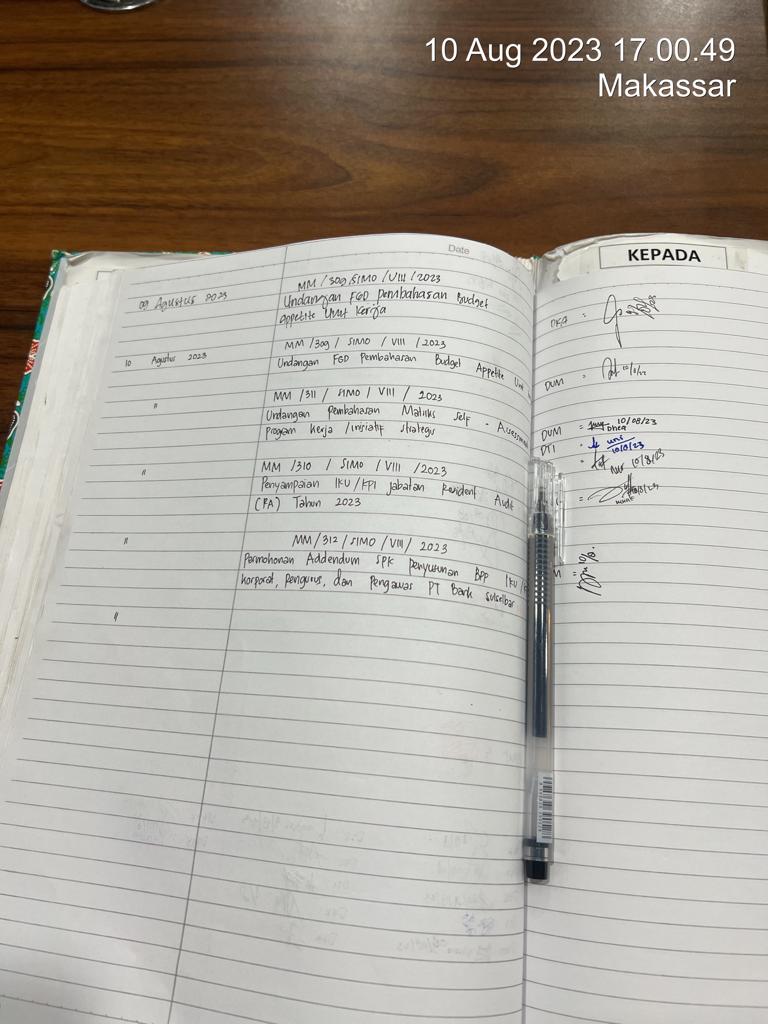 10 Aug 2023 17.00.49
Makassar
Date
09 Agustus 2023
MM / 309 / SIMO / VIII / 2023
Undangan FGD Pembahasan Budget
Appetite Unit Kerja
10 Agustus 2023
MM / 309 / SIMO / VIII / 2023
Undangan FGD Pembahasan Budget Appetite
"
MM / 311 / SIMO / VIII / 2023
Undangan Pembahasan Matriks Self - Assessment
Program Kerja / Inisiatif Strategis
"
MM / 310 / SIMO / VIII / 2023
Penyampaian IKU / KPI Jabatan Resident Audit
(RA) Tahun 2023
"
MM / 312 / SIMO / VIII / 2023
Permohonan Addendum SPK Penyusunan BPP IKU /
Korporat, Pengurus, dan Pengawas PT Bank Sulselbar
"
KEPADA
DUM =
DUM = Dhea 10/08/23
DTI = uni
10/8/23
= 10/8/23
=